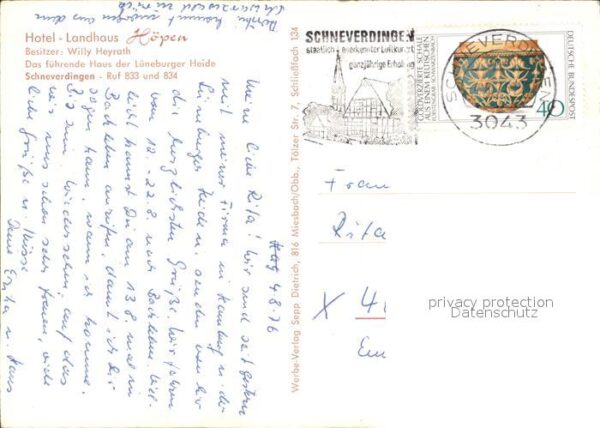 Hotel - Landhaus Höpen
Besitzer: Willy Heyrath
Das führende Haus der Lüneburger Heide
Schneverdingen - Ruf 833 und 834
4.8.76
Meine liebe Rita! Wir sind seit gestern
mit meiner Firma in Hamburg u. der
Lüneburger Heide u. senden von hier
die herzlichsten Grüße. Wir fahren
vom 18. - 22.8. nach
kannst Du am 13.8. mal in
anrufen, damit ich Dir
sagen kann, wann ich komme.
Bis zum Wiedersehen, auf das
wir uns schon sehr freuen, viele
liebe Grüße u. Küsse
Deine Erika u. Hans
Werbe-Verlag Sepp Dietrich, 816 Miesbach/Obb., Tölzer Str. 7, Schließfach 134
SCHNEVERDINGEN
staatlich anerkannter Luftkurort
ganzjährige Erholung
SCHNEVERDINGEN
3043
GOLDVERZIERTE SCHALE
AUS EINEM KELTISCHEN
DEUTSCHE BUNDESPOST
40
Frau
Rita
X 4
privacy protection
Datenschutz